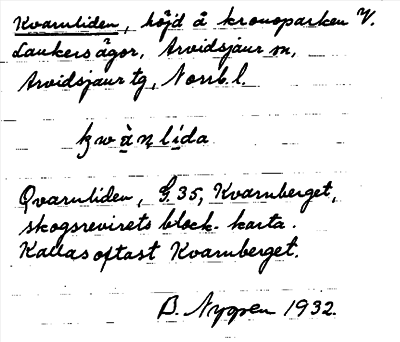 Kvarnliden, höjd å kronoparken V.
Laukersågor, Arvidsjaur sn,
Arvidsjaur tg, Norrb. l.
kwàṇlìda
Qvarnliden, G. 35, Kvarnberget,
skogsrevirets block-karta.
Kallas oftast Kvarnberget.
B. Nygren 1932.